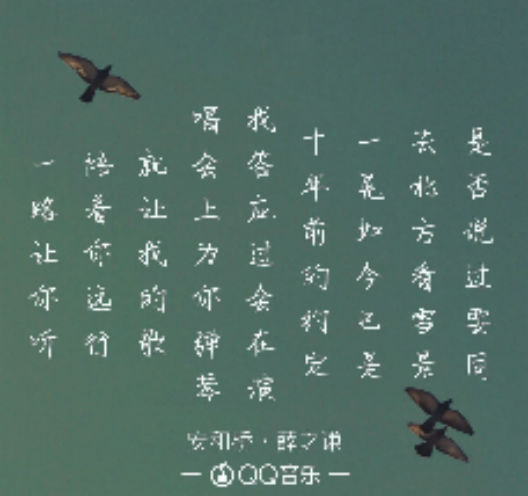 是否说过要同
去北方看雪景
一晃如今已是
十年前的约定
我答应过会在演
唱会上为你
就让我的歌
陪着你远行
一路让你听
安和桥·薛之谦
QQ音乐